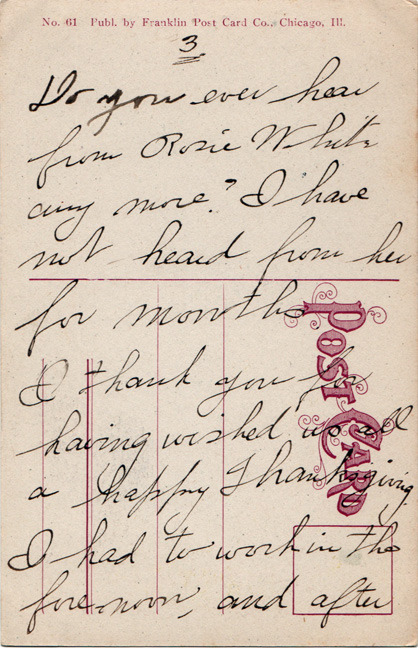 No. 61 Publ. by Franklin Post Card Co., Chicago, Ill.
3
Do you ever hear
from Rosie White
any more? I have
not heard from her
for months
I thank you for
having wished us all
a happy Thanksgiving.
I had to work in the
fore-noon, and after
POST CARD